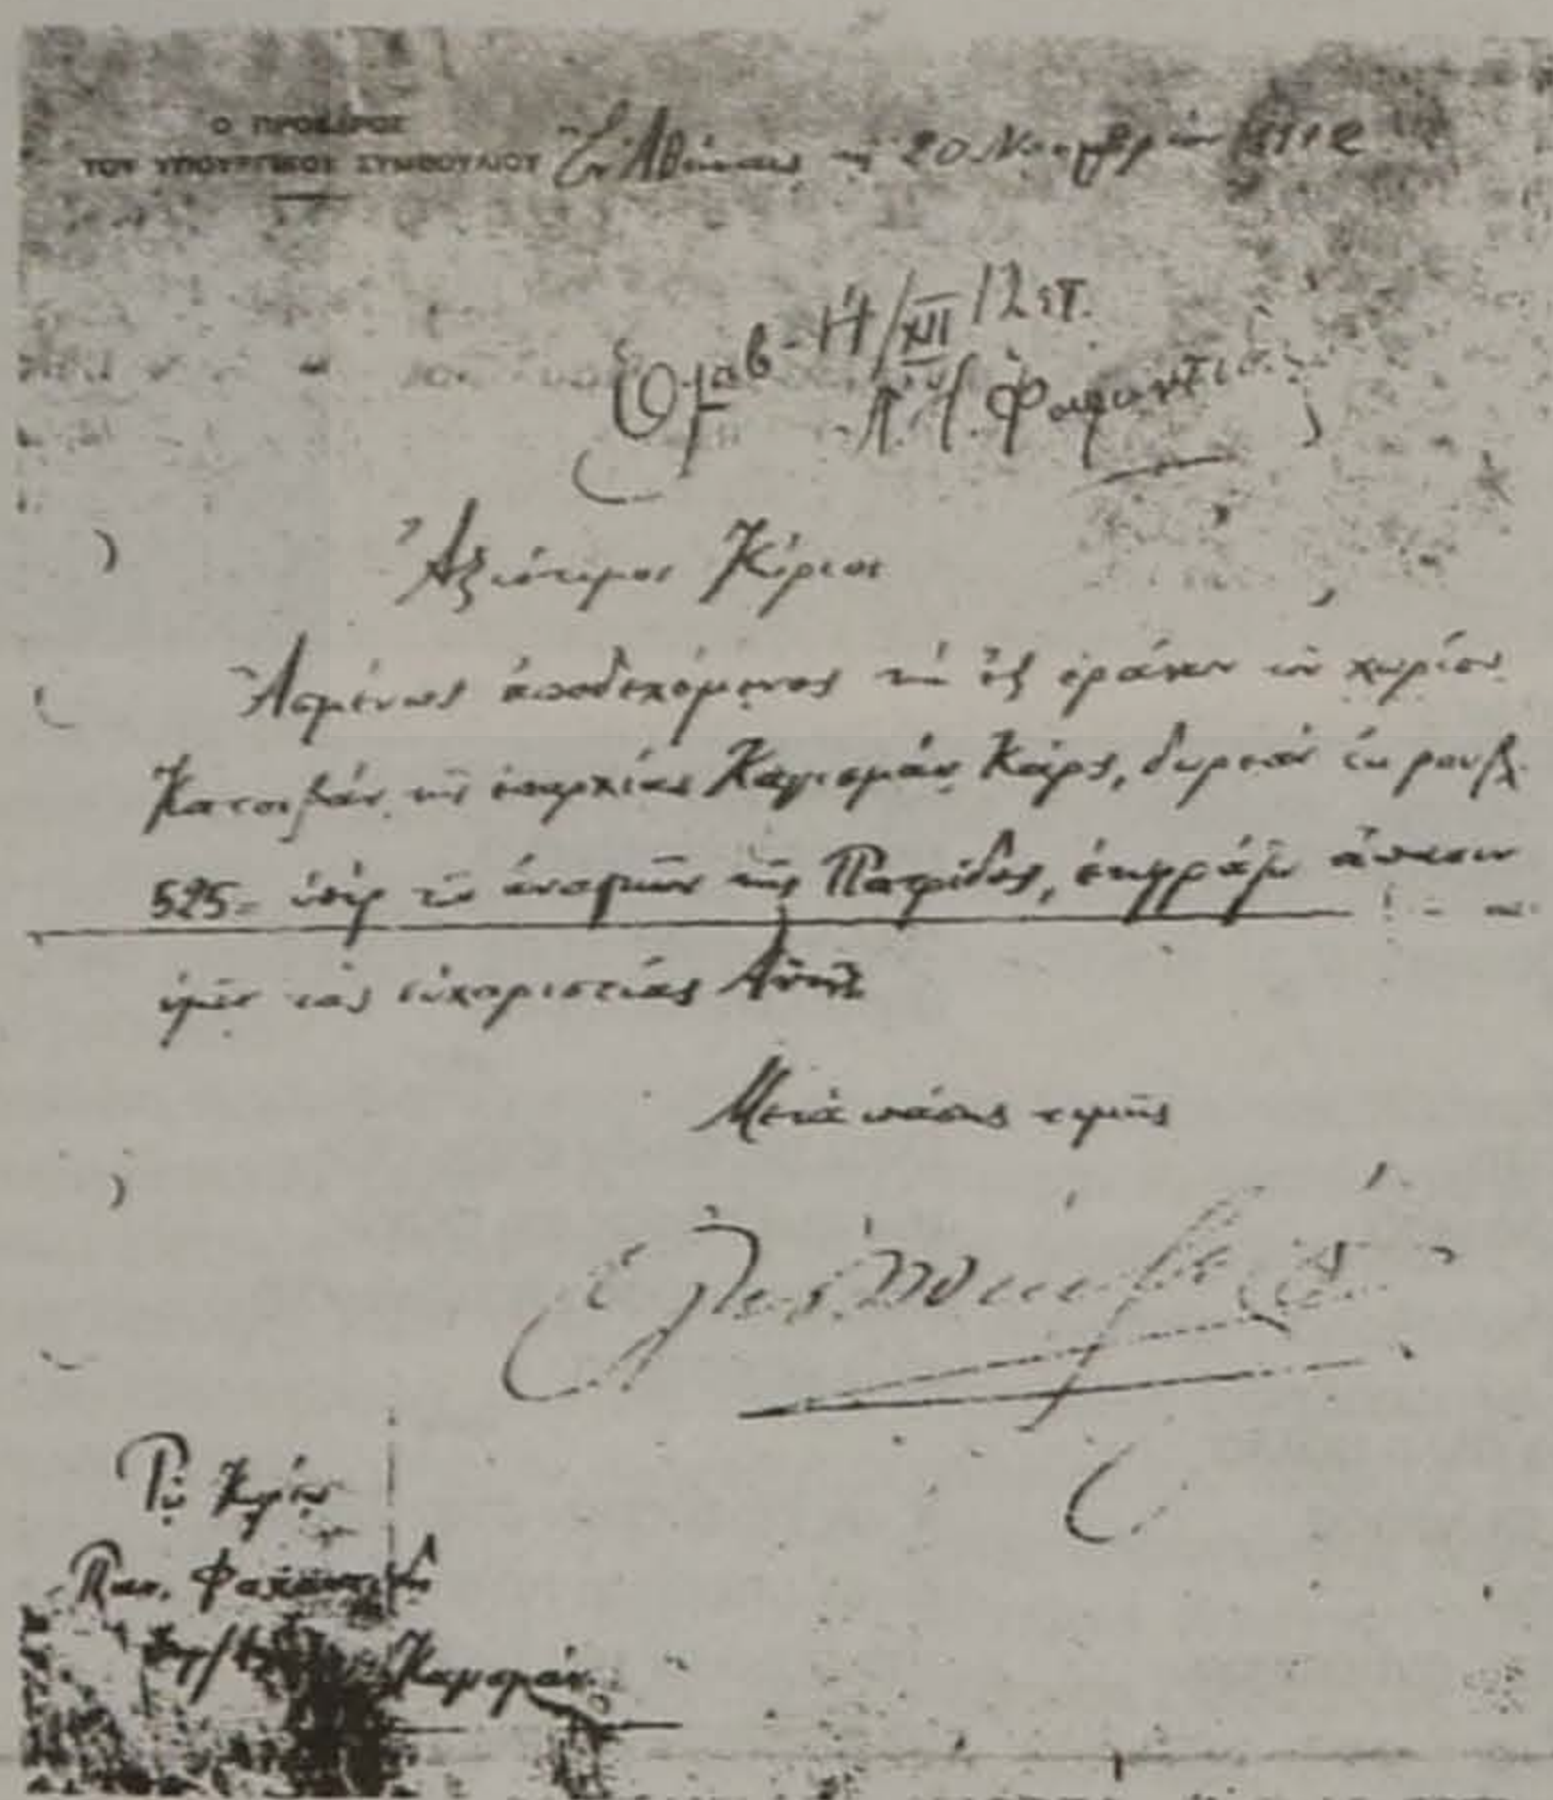 Ο ΠΡΟΕΔΡΟΣ
ΤΟΥ ΥΠΟΥΡΓΙΚΟΥ ΣΥΜΒΟΥΛΙΟΥ Ἐν Ἀθήναις τῇ 20 Νοεμβρίου 1912
14/XII 12 ἔτ.
Ἀξιότιμοι Κύριοι
Ἀσμένως ἀποδεχόμενος τὴν ἐξ ἐράνων τοῦ χωρίου
τῆς ἐπαρχίας Καγισμάν Κάρς, δωρεάν ἐκ ρουβλ.
525= ὑπέρ τῶν ἀναγκῶν τῆς Πατρίδος, ἐκφράζω ἅπασιν
ὑμῖν τὰς εὐχαριστίας Αὐτῆς
Μετὰ πάσης τιμῆς
Τῷ Κυρίῳ
Φαχαντίδη
Καγισμάν